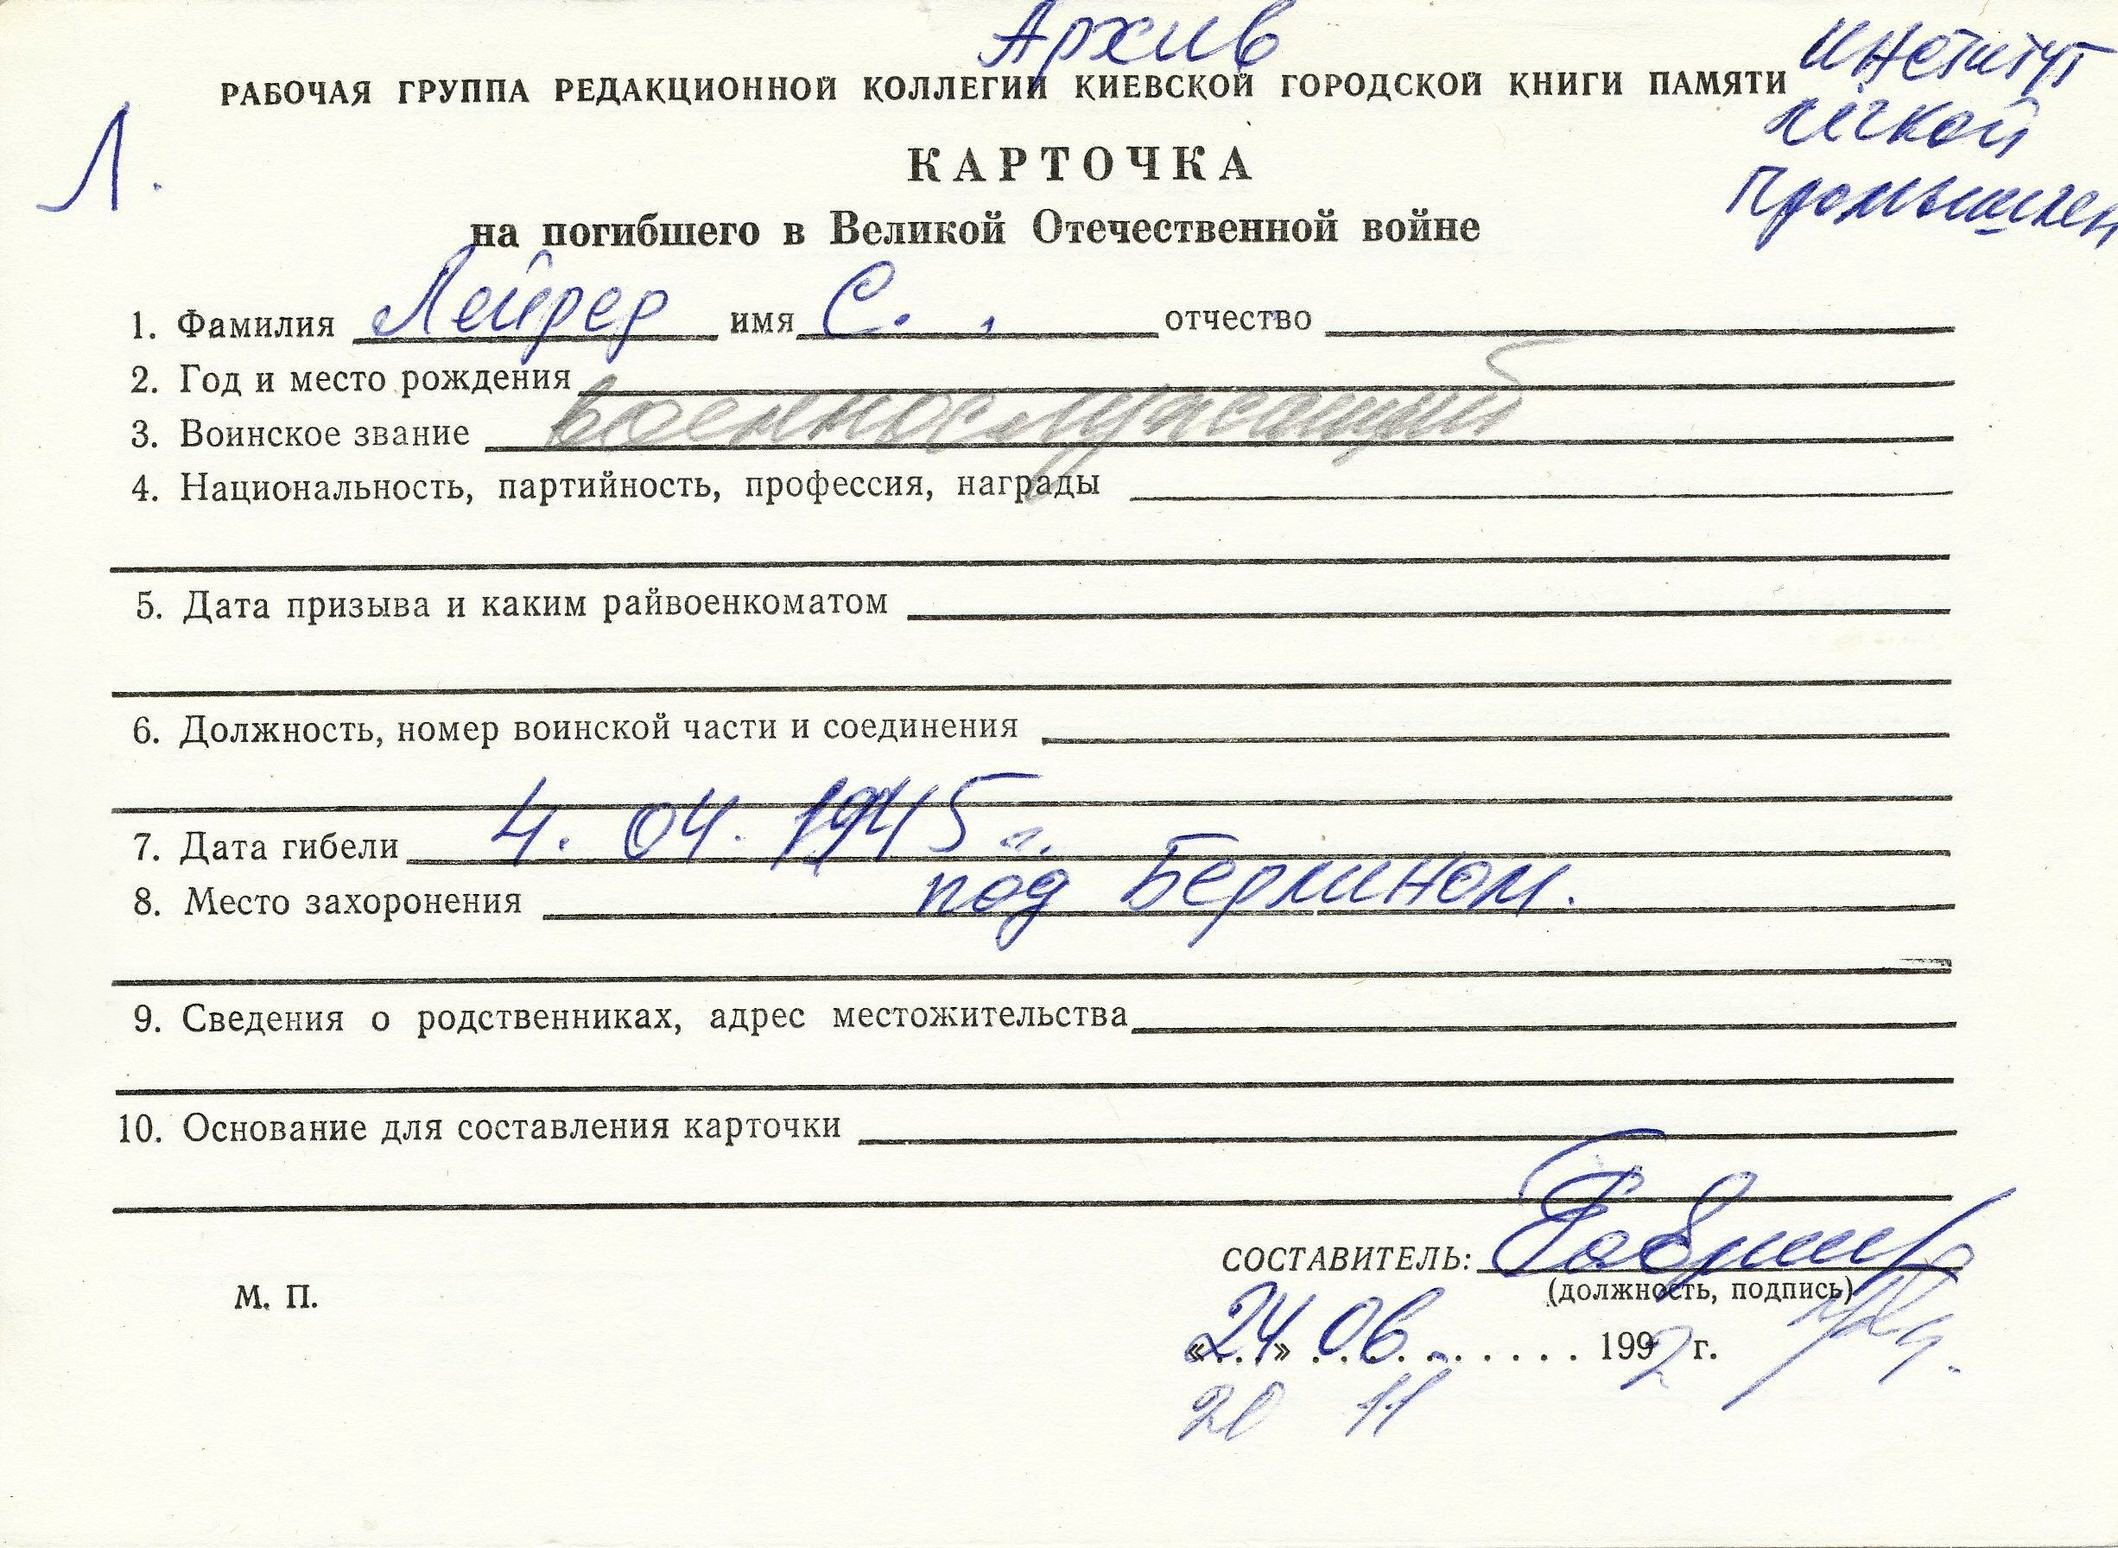 Архив
Институт
РАБОЧАЯ ГРУППА РЕДАКЦИОННОЙ КОЛЛЕГИИ КИЕВСКОЙ ГОРОДСКОЙ КНИГИ ПАМЯТИ
легкой
Л.
КАРТОЧКА
Промышлен
на погибшего в Великой Отечественной войне
1. Фамилия Лейрер имя С. отчество
2. Год и место рождения
3. Воинское звание военнослужащий
4. Национальность, партийность, профессия, награды
5. Дата призыва и каким райвоенкоматом
6. Должность, номер воинской части и соединения
7. Дата гибели 4. 04. 1945
8. Место захоронения под Берлином.
9. Сведения о родственниках, адрес местожительства
10. Основание для составления карточки
СОСТАВИТЕЛЬ:
(должность, подпись)
М. П.
«24» 06. 1992 г.
20 11